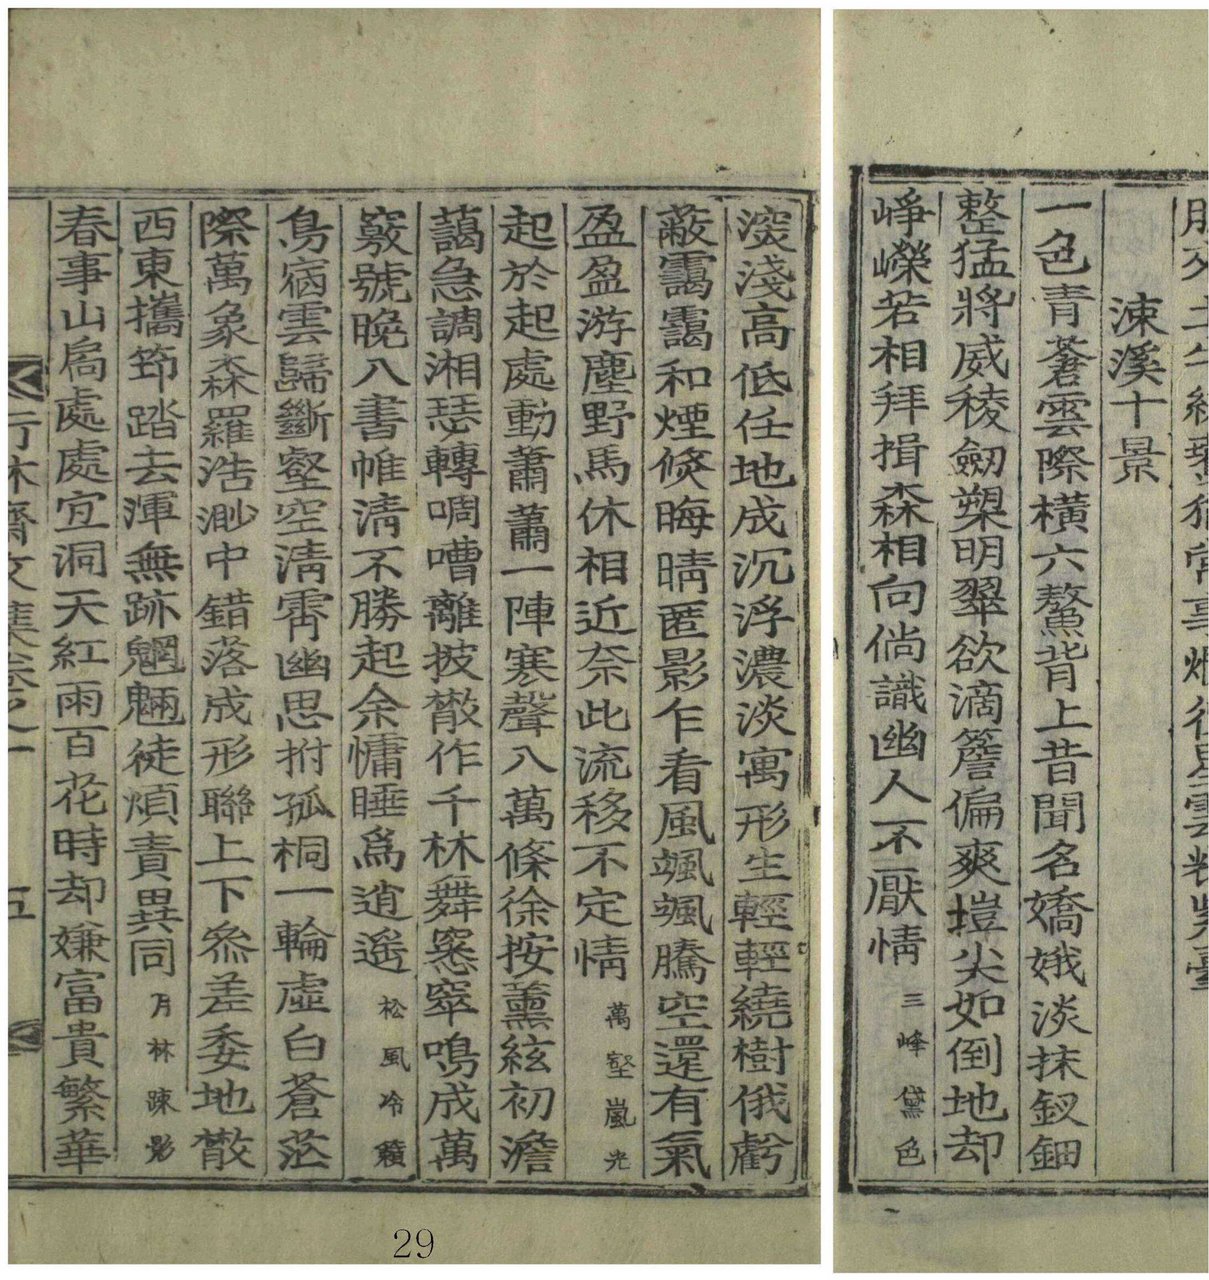 涑溪十景
一色青蒼雲際橫六鰲背上昔聞名嬌娥淡抹釵鈿
整猛將威稜劒槊明翠欲滴簷偏爽塏尖如倒地却
崢嶸若相拜揖森相向倘識幽人不厭情 三峰黛色
深淺高低任地成沉浮濃淡寓形生輕輕繞樹俄虧
蔽靄靄和煙倐晦晴匿影乍看風颯颯騰空還有氣
盈盈游塵野馬休相近奈此流移不定情 萬壑嵐光
起於起處動蕭蕭一陣寒聲八萬條徐按薰絃初澹
藹急調湘瑟轉啁嘈離披散作千林舞窸窣鳴成萬
竅號晩八書帷淸不勝起余慵睡爲逍遙 松風冷籟
鳥宿雲歸斷壑空淸霄幽思拊孤桐一輪虛白蒼茫
際萬象森羅浩渺中錯落成形聯上下參差委地散
西東攜笻踏去渾無跡魍魎徒煩責異同 月林疎影
春事山扃處處宜洞天紅雨百花時却嫌富貴繁華
文集卷之一 五
29